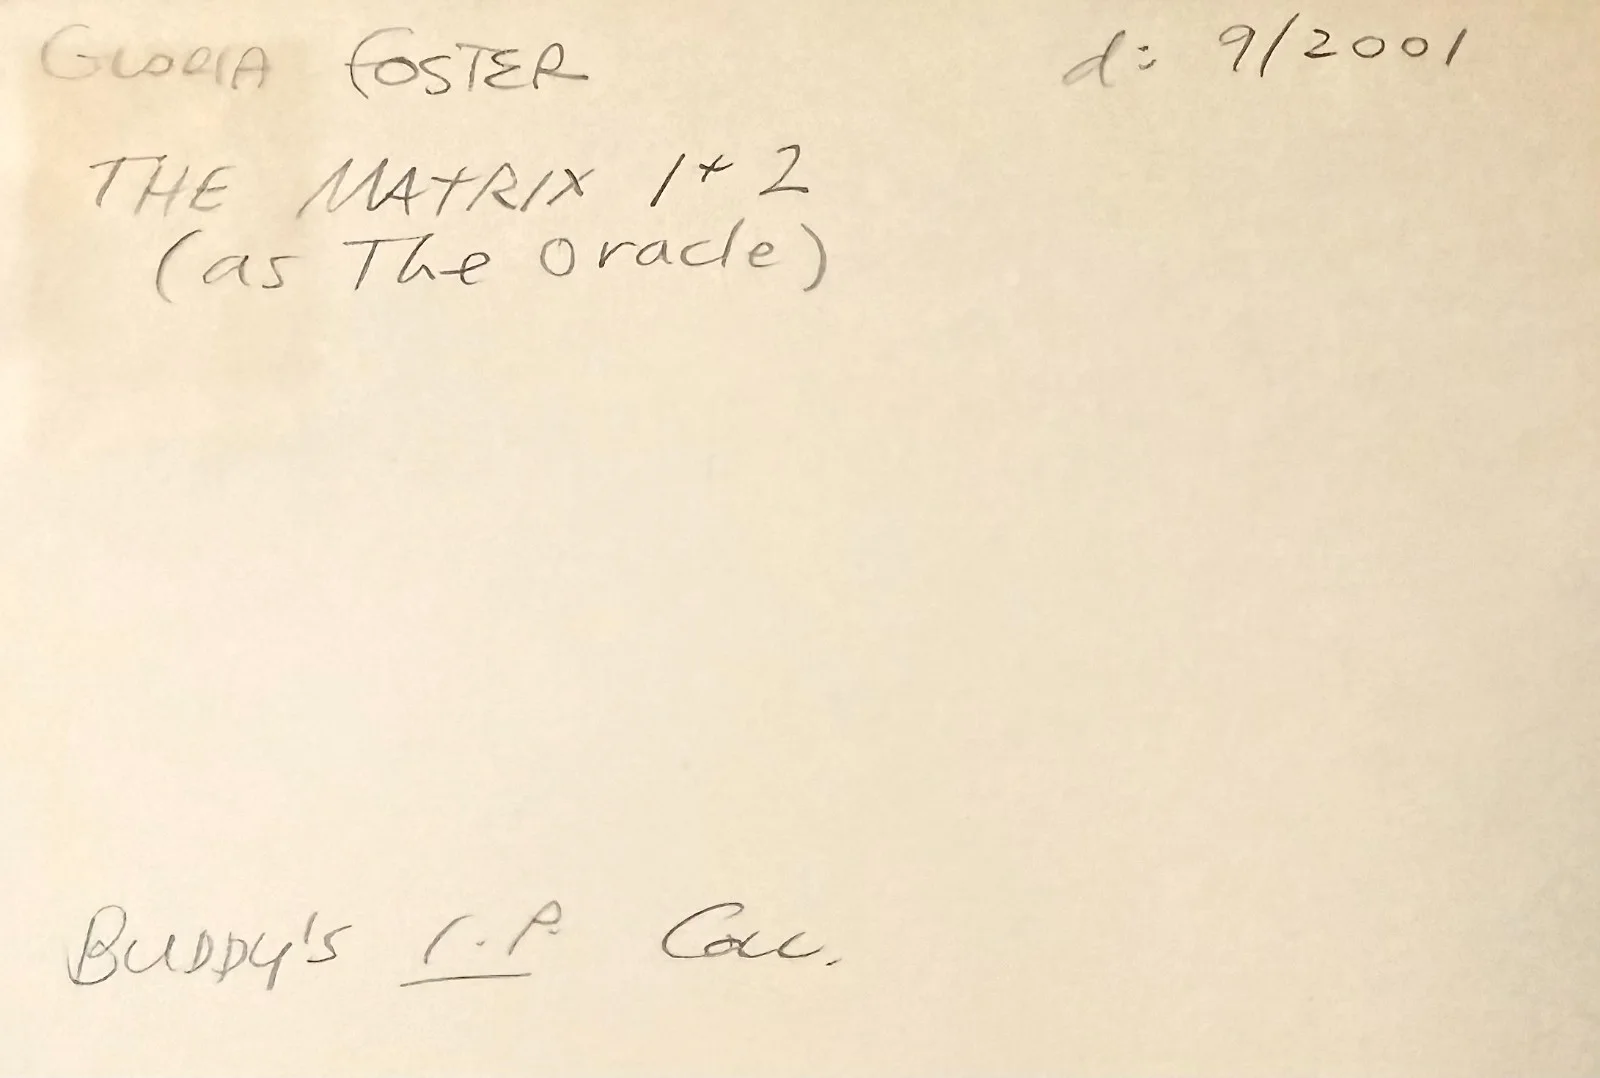 GLORIA FOSTER d: 9/2001
THE MATRIX 1 + 2
(as The Oracle)
BUDDY'S I.P. Coll.